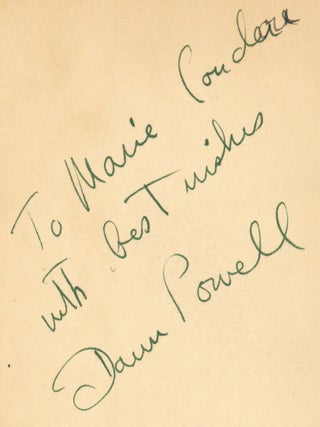 To Marie Condere
with best wishes
Dawn Powell